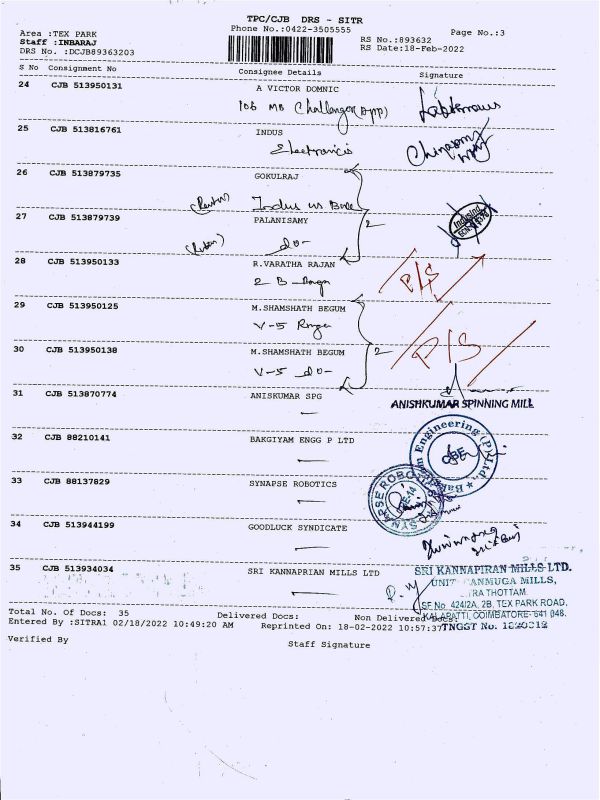 TPC/CJB DRS - SITR
Area :TEX PARK Phone No.:0422-3505555 Page No.:3
Staff :INBARAJ RS No.:893632
DRS No. :DCJB89363203 RS Date:18-Feb-2022
S No Consignment No Consignee Details Signature
24 CJB 513950131 A VICTOR DOMNIC
106 MB Challenger (App)
25 CJB 513816761 INDUS
Electronics
26 CJB 513879735 GOKULRAJ
Indus
27 CJB 513879739 PALANISAMY 2
do-
28 CJB 513950133 R.VARATHA RAJAN
2 B P/S
29 CJB 513950125 M.SHAMSHATH BEGUM
V-5
30 CJB 513950138 M.SHAMSHATH BEGUM 2 P/S
V-5 do-
31 CJB 513870774 ANISKUMAR SPG ANISHKUMAR SPINNING MILL
32 CJB 88210141 BAKGIYAM ENGG P LTD
Engineering (P) Ltd.
33 CJB 88137829 SYNAPSE ROBOTICS
SYNAPSE ROBO
34 CJB 513944199 GOODLUCK SYNDICATE
35 CJB 513934034 SRI KANNAPRIAN MILLS LTD
SRI KANNAPIRAN MILLS LTD.
UNIT ANMUGA MILLS,
RA THOTTAM
SF No. 424/2A, 2B, TEX PARK ROAD,
KALAPATTI, COIMBATORE-641 048.
TNGST No.
Total No. Of Docs: 35 Delivered Docs: Non Delivered Docs:
Entered By :SITRA1 02/18/2022 10:49:20 AM Reprinted On: 18-02-2022 10:57:37
Verified By Staff Signature